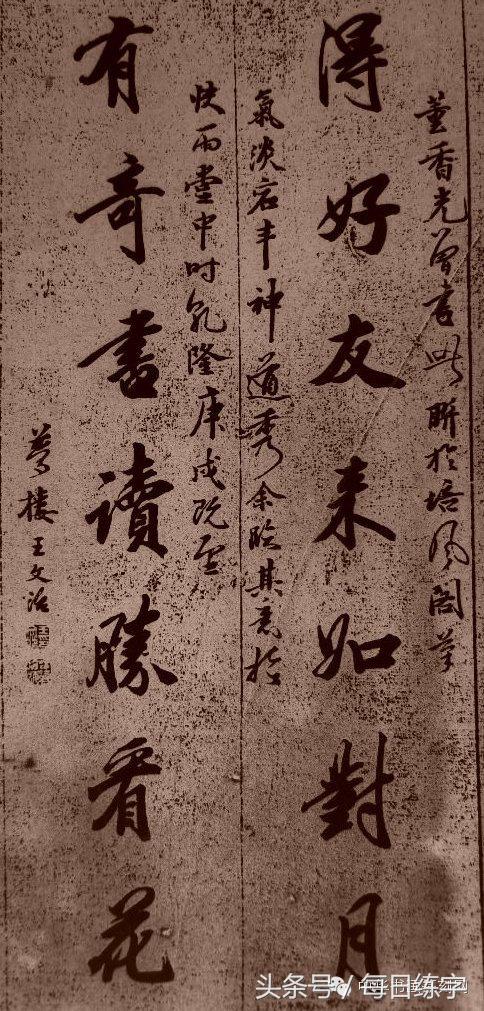 董香光曾書此聯於培風閣筆
得好友来如對月
氣淡宕丰神遒秀余臨其意於
快雨堂中时乾隆庚戌既望
有奇書讀勝看花
夢樓王文治
头条号 / 每日练字